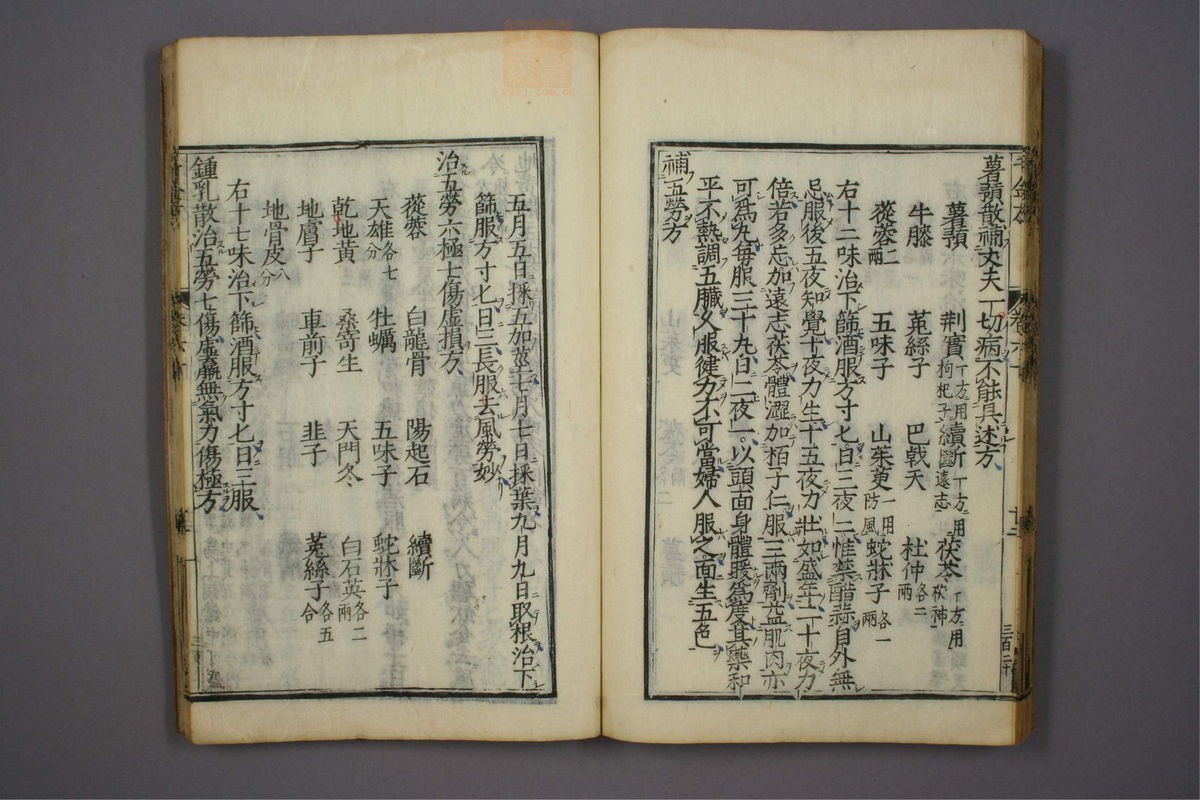 薯蕷散補丈夫一切病不能具述方
薯蕷 荆實一方用枸杞子 續斷一方用遠志 茯苓一方用茯神
牛膝 菟絲子 巴戟天 杜仲各二兩
蓯蓉二兩 五味子 山茱萸一用防風 蛇牀子各一兩
右十二味治下篩酒服方寸匕日三夜二惟禁醋蒜自外無
忌服後五夜知覺十夜力生十五夜力壯如盛年二十夜力
倍若多忘加遠志茯苓體澀加栢子仁服三兩劑益肌肉亦
可爲丸每服三十丸日二夜一以頭面身體暖爲度其藥和
平不熱調五臟久服健力不可當婦人服之面生五色
補五勞方
五月五日採五加莖七月七日採葉九月九日取根治下
篩服方寸匕日三長服去風勞妙
治五勞六極七傷虛損方
蓯蓉 白龍骨 陽起石 續斷
天雄各七分 牡蠣 五味子 蛇牀子
乾地黄 桑寄生 天門冬 白石英各二兩
地膚子 車前子 韭子 菟絲子各五合
地骨皮八分
右十七味治下篩酒服方寸匕日三服
鍾乳散治五勞七傷虛羸無氣力傷極方